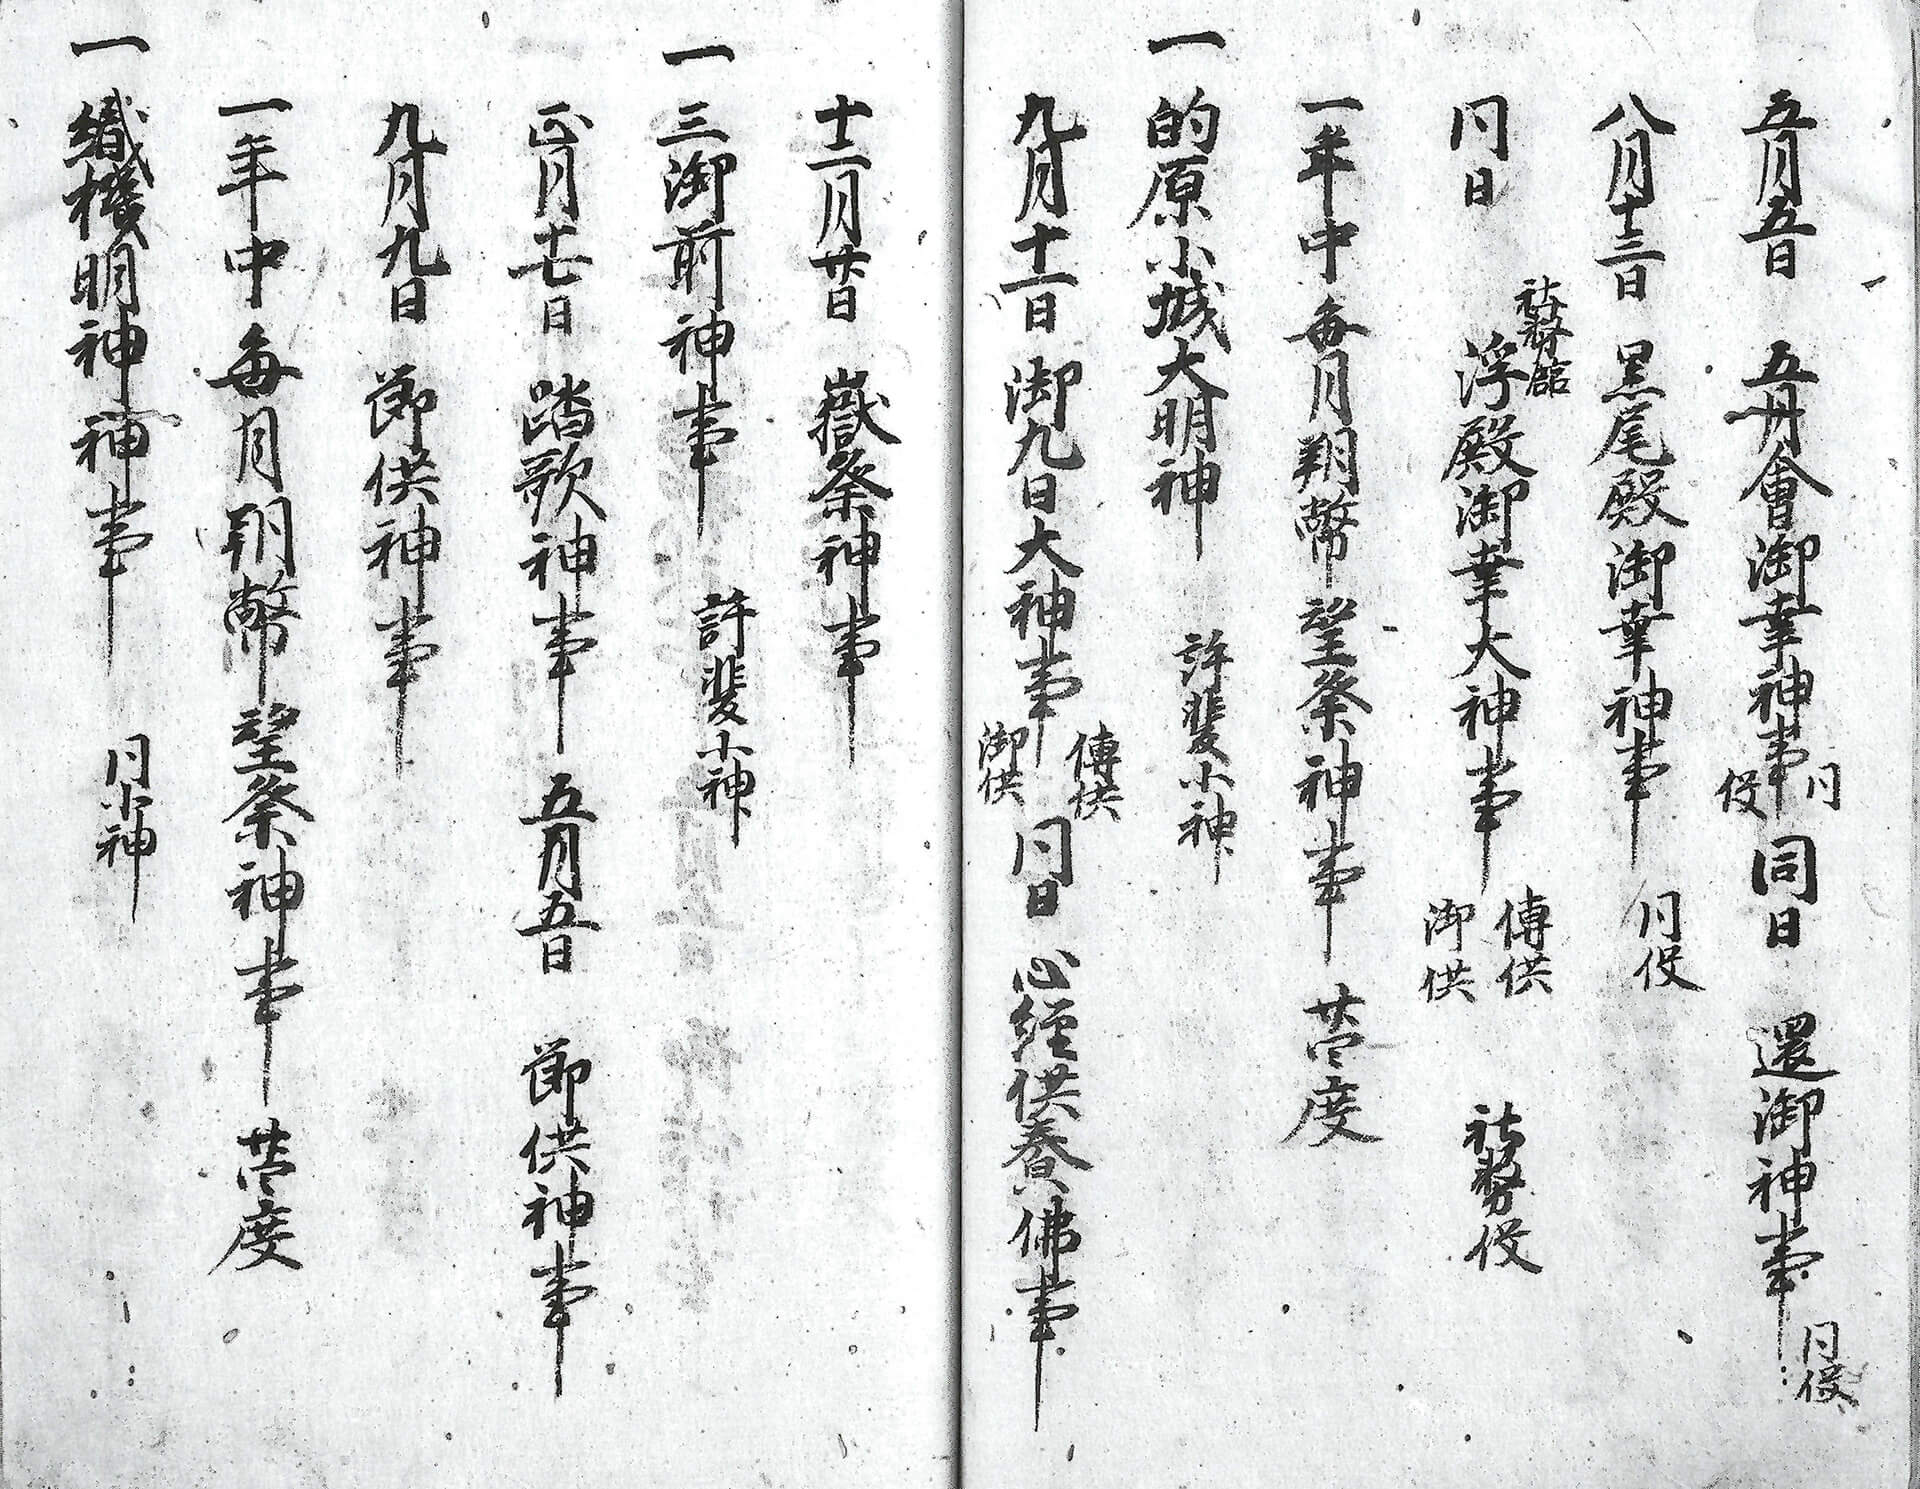 五月五日 五月會御幸神事 同役 同日 還御神事 同役
八月十三日 黒尾殿御幸神事 同役
同日 社務館 浮殿御幸大神事 傳供 御供 社務役
一年中毎月朔幣望祭神事 廿四度
一 的原小城大明神 許斐小神
九月十一日 御九日大神事 傳供 御供 同日 心經供養佛事
十一月廿日 嶽祭神事
一 三御前神事 許斐小神
正月十七日 踏歌神事 五月五日 節供神事
九月九日 節供神事
一年中毎月朔幣望祭神事 廿四度
一 織機明神神事 同小神